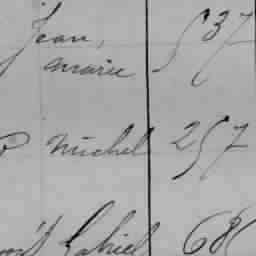 Jean,
Marie 537
Michel 257
Gabriel 68